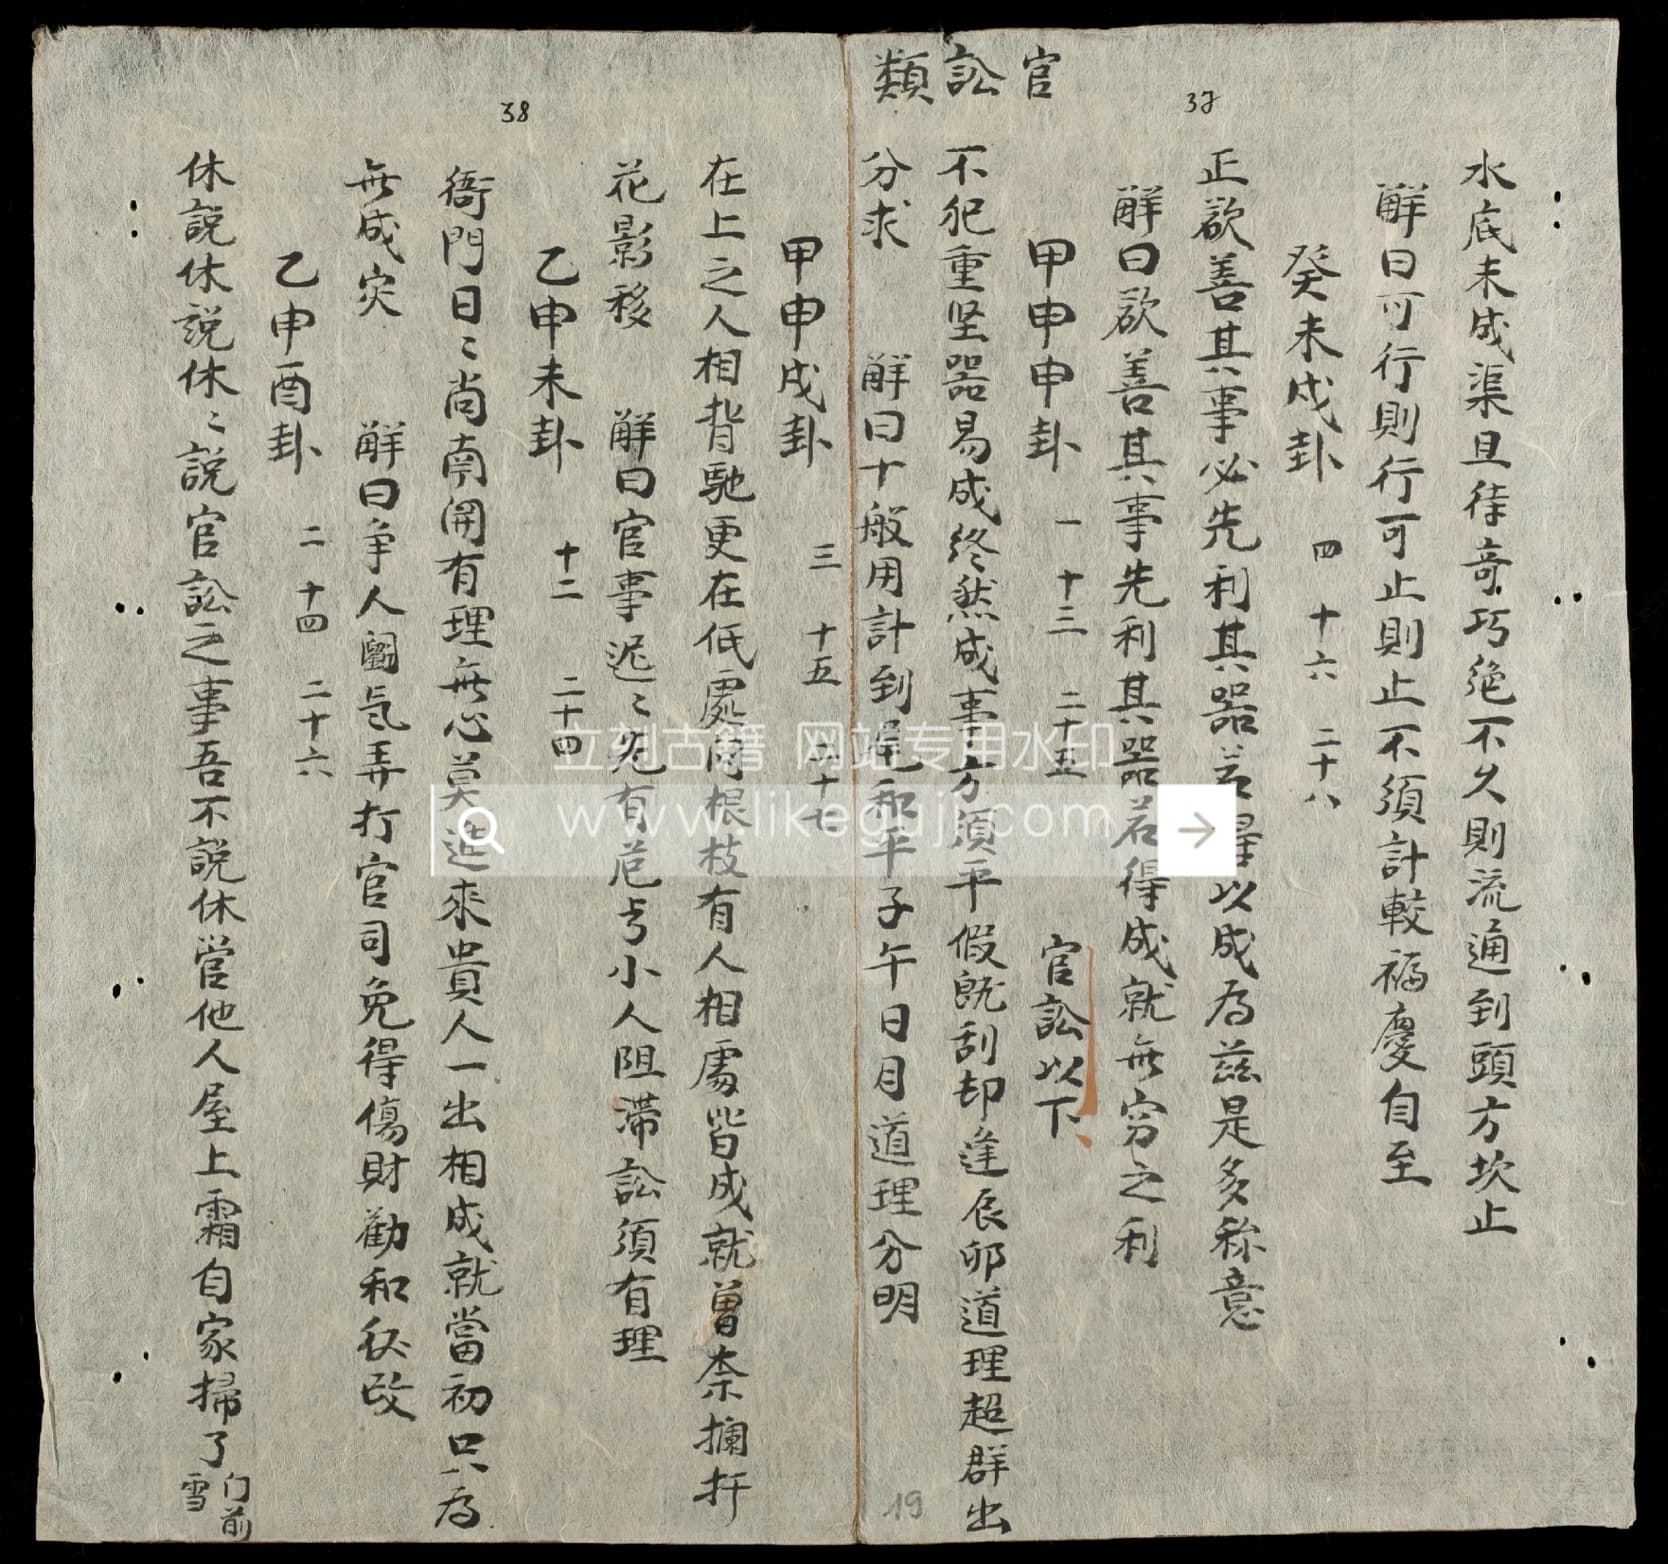 官訟類
37
水底未成渠且待奇巧绝不久則流通到頭方坎止
解曰可行則行可止則止不須計較福慶自至
癸未戌卦 四 十六 二十八
正欲善其事必先利其器若得以成為兹是多称意
解曰欲善其事先利其器若得成就無穷之利
甲申申卦 一 十三 二十五 官訟以下
不犯重坚器易成終然成事方須平假既刮却逢辰卯道理超群出
分求 解曰十般用計到尾和平子午日月道理分明
19
38
甲申戌卦 三 十五 二十七
在上之人相背馳更在低處用根枝有人相處皆成就曽奈攔扞
花影移 解曰官事迟〻先有芭㐌小人阻滞訟須有理
乙申未卦 十二 二十四
衙門日〻尚南開有理無心莫進來貴人一出相成就當初只為
無成灾 解曰争人鬪氣弄打官司免得傷財勸和
乙申酉卦 二 十四 二十六
休説休説休〻説官訟之事吾不説休管他人屋上霜自家掃了门前雪
立刻古籍 网站专用水印
www.likeguji.com